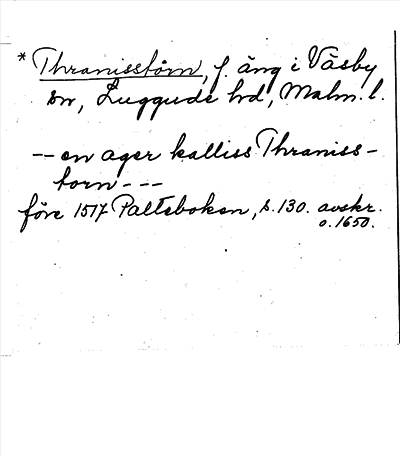 * Thranissförn, f. äng i Väsby
sn, Luggude hd, Malm. l.
-- en ager kalliss Thraniss-
torn - - -
före 1517 Palteboken, s. 130. avskr.
o. 1650.